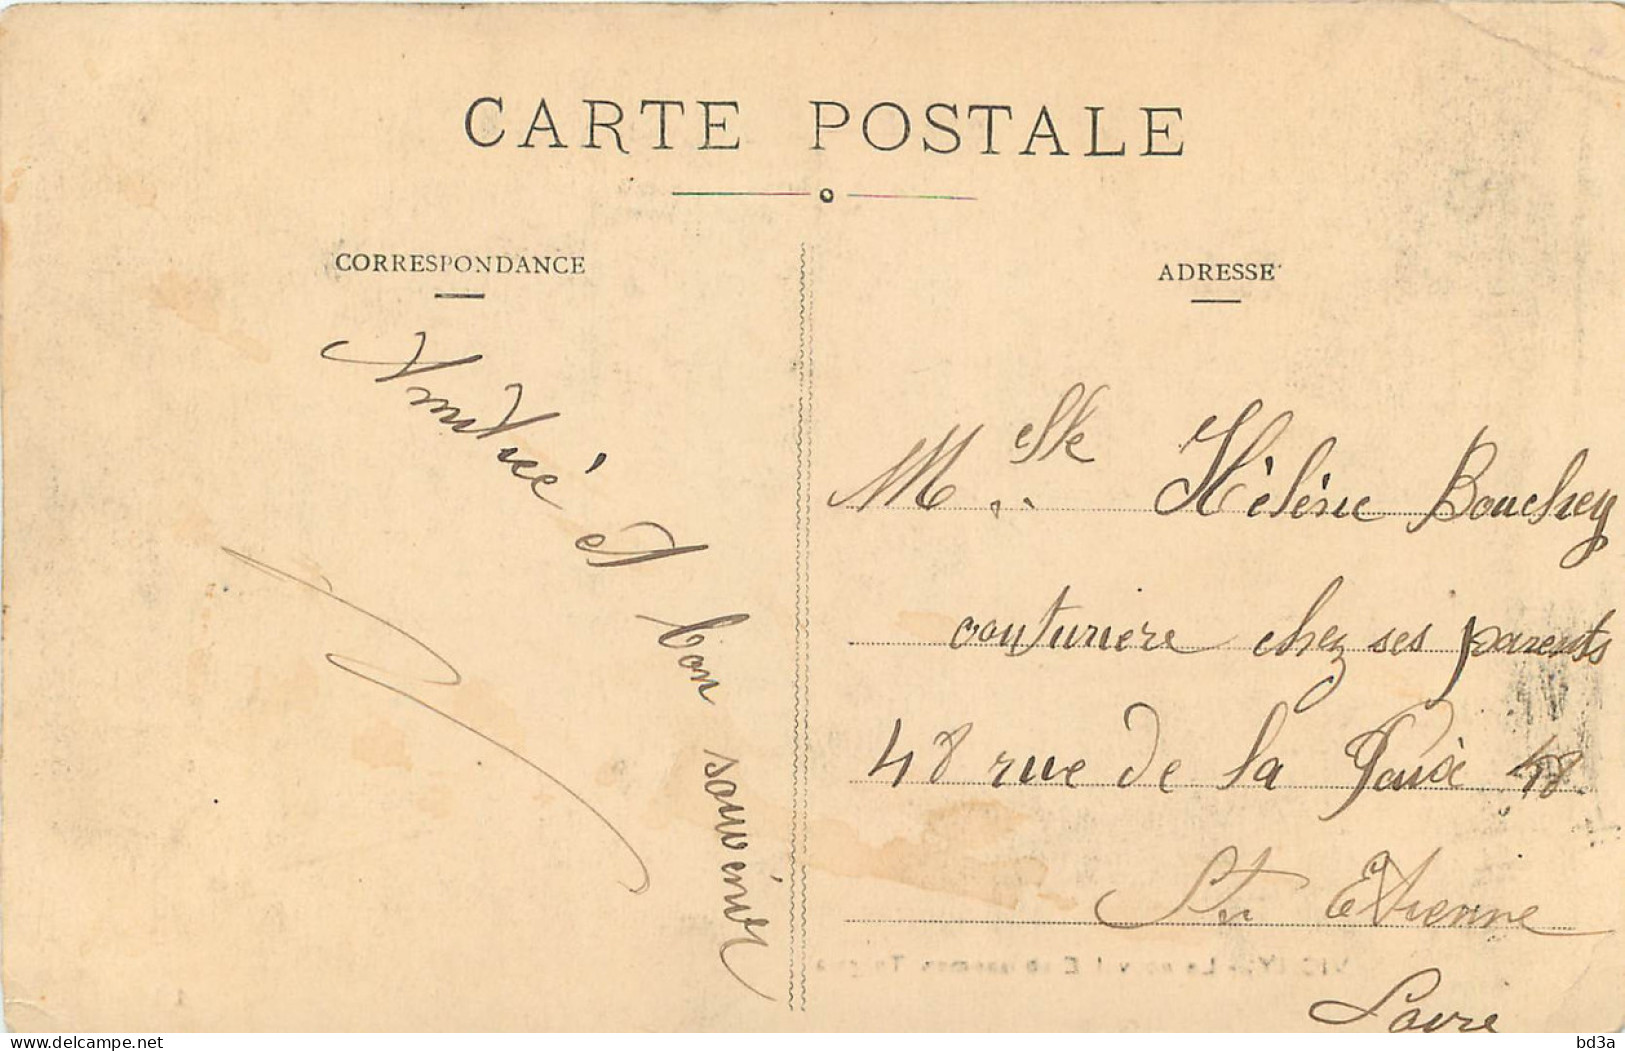 CARTE POSTALE
CORRESPONDANCE
ADRESSE
Amitié et bon souvenir
Melle Hélène Bouchey
couturiere chez ses parents
48 rue de la Paix 48
St Etienne
Loire
delcampe.net
bd3a